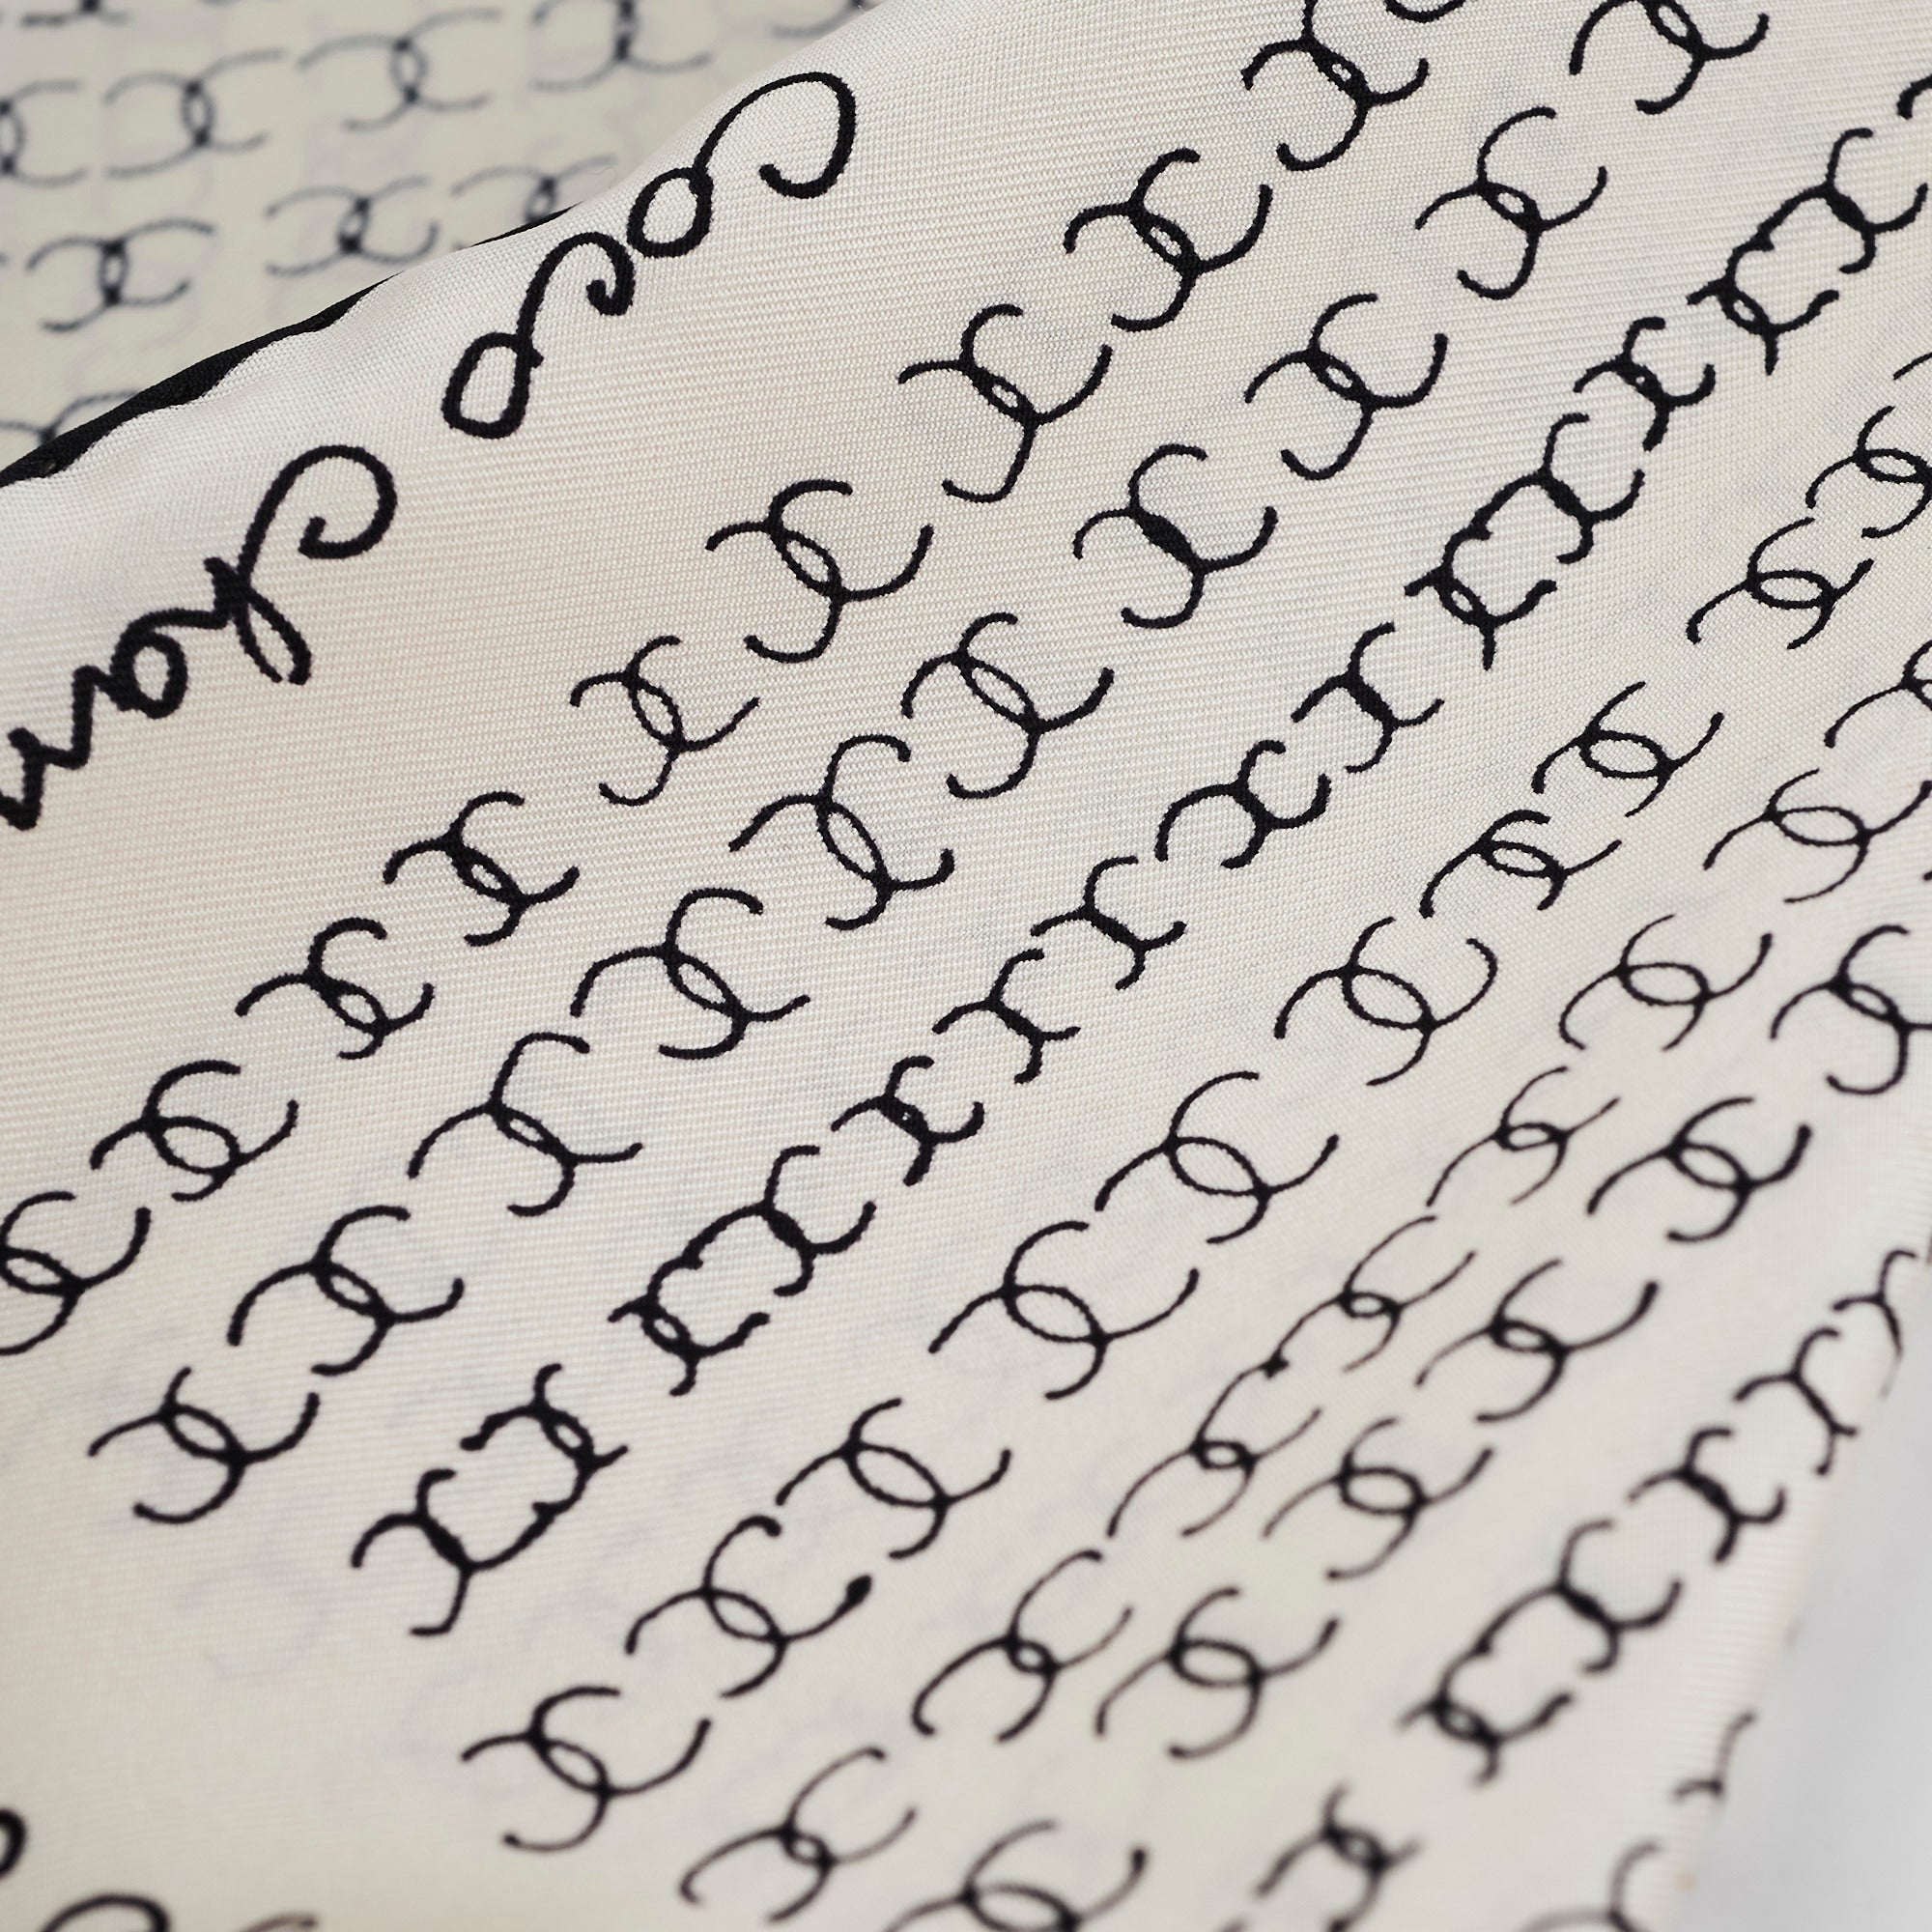 Coco Chan